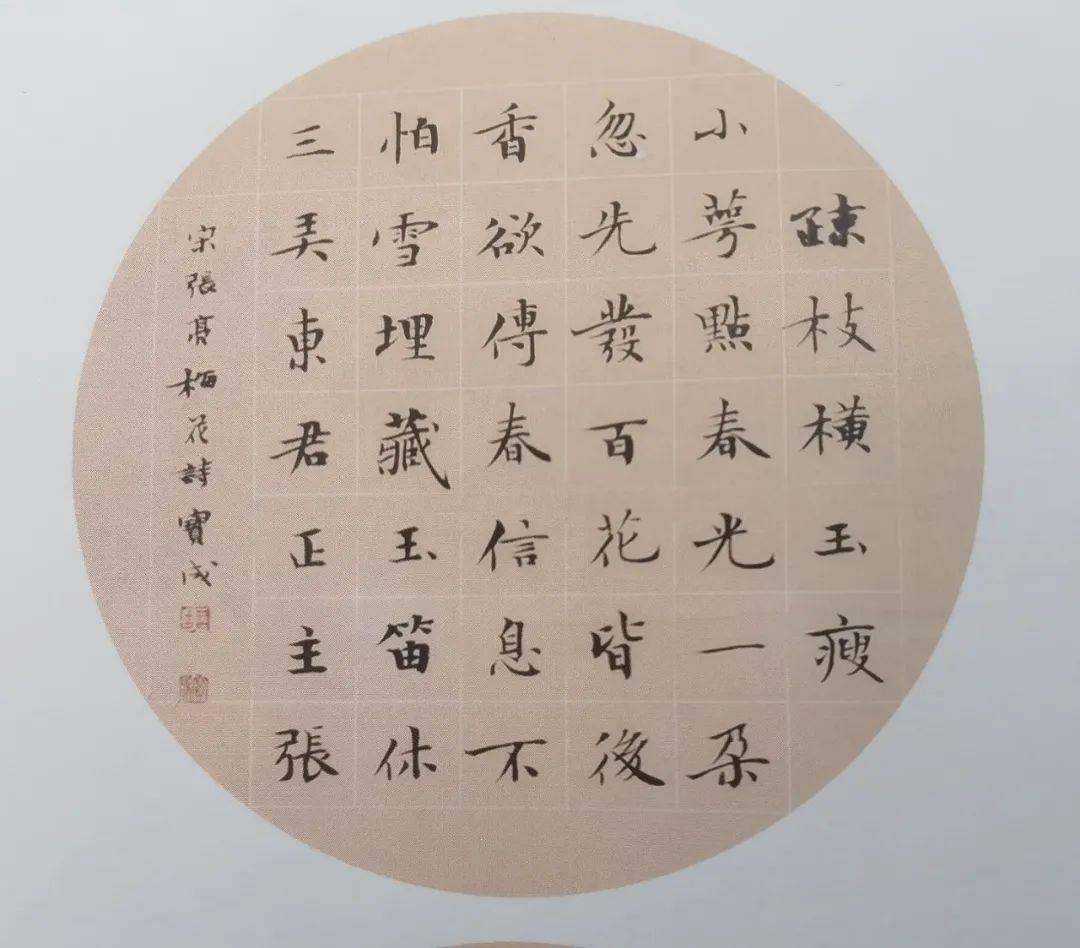 疎枝橫玉瘦
小萼點春光一朵
忽先發百花皆後
香欲傳春信息不
怕雪埋藏玉笛休
三弄東君正主張
宋張梅花詩寶成